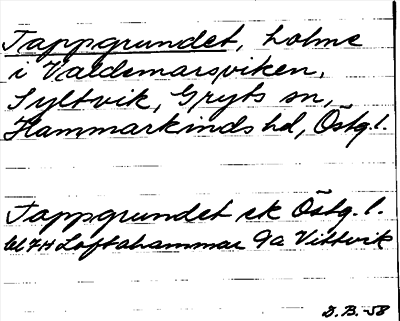 Tappgrundet, holme
i Valdemarsviken,
Syltvik, Gryts sn,
Hammarkinds hd, Östg. l.
Tappgrundet ek Östg. l.
bl 7H Loftahammar 9a Vittvik
D.B.-58